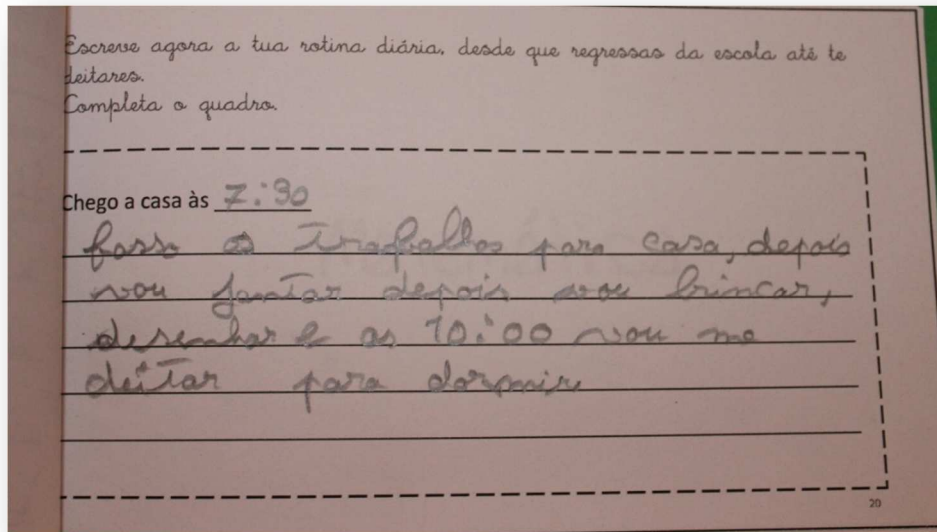 Escreve agora a tua rotina diária, desde que regressas da escola até te
deitares.
Completa o quadro.
Chego a casa às 7:30
fasso os trabalhos para casa, depois
vou jantar depois vou brincar,
desenhar e as 10:00 vou me
deitar para dormir
20